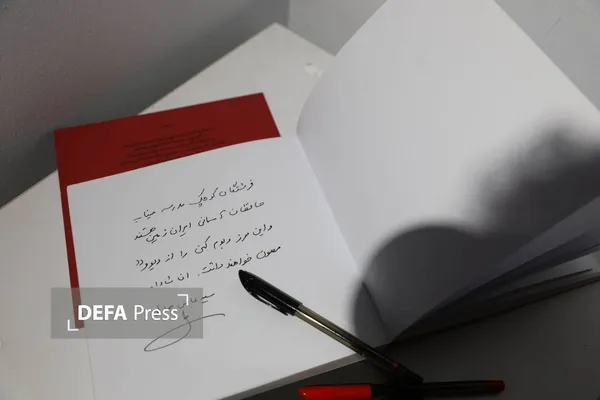 فرشتگان کوچک مدرسه میناب
حافظان آسمانی ایران زمین هستند
و این مرز و بوم کهن را از دیو و دد
مصون خواهند داشت. ان شاءالله
سید
DEFA Press